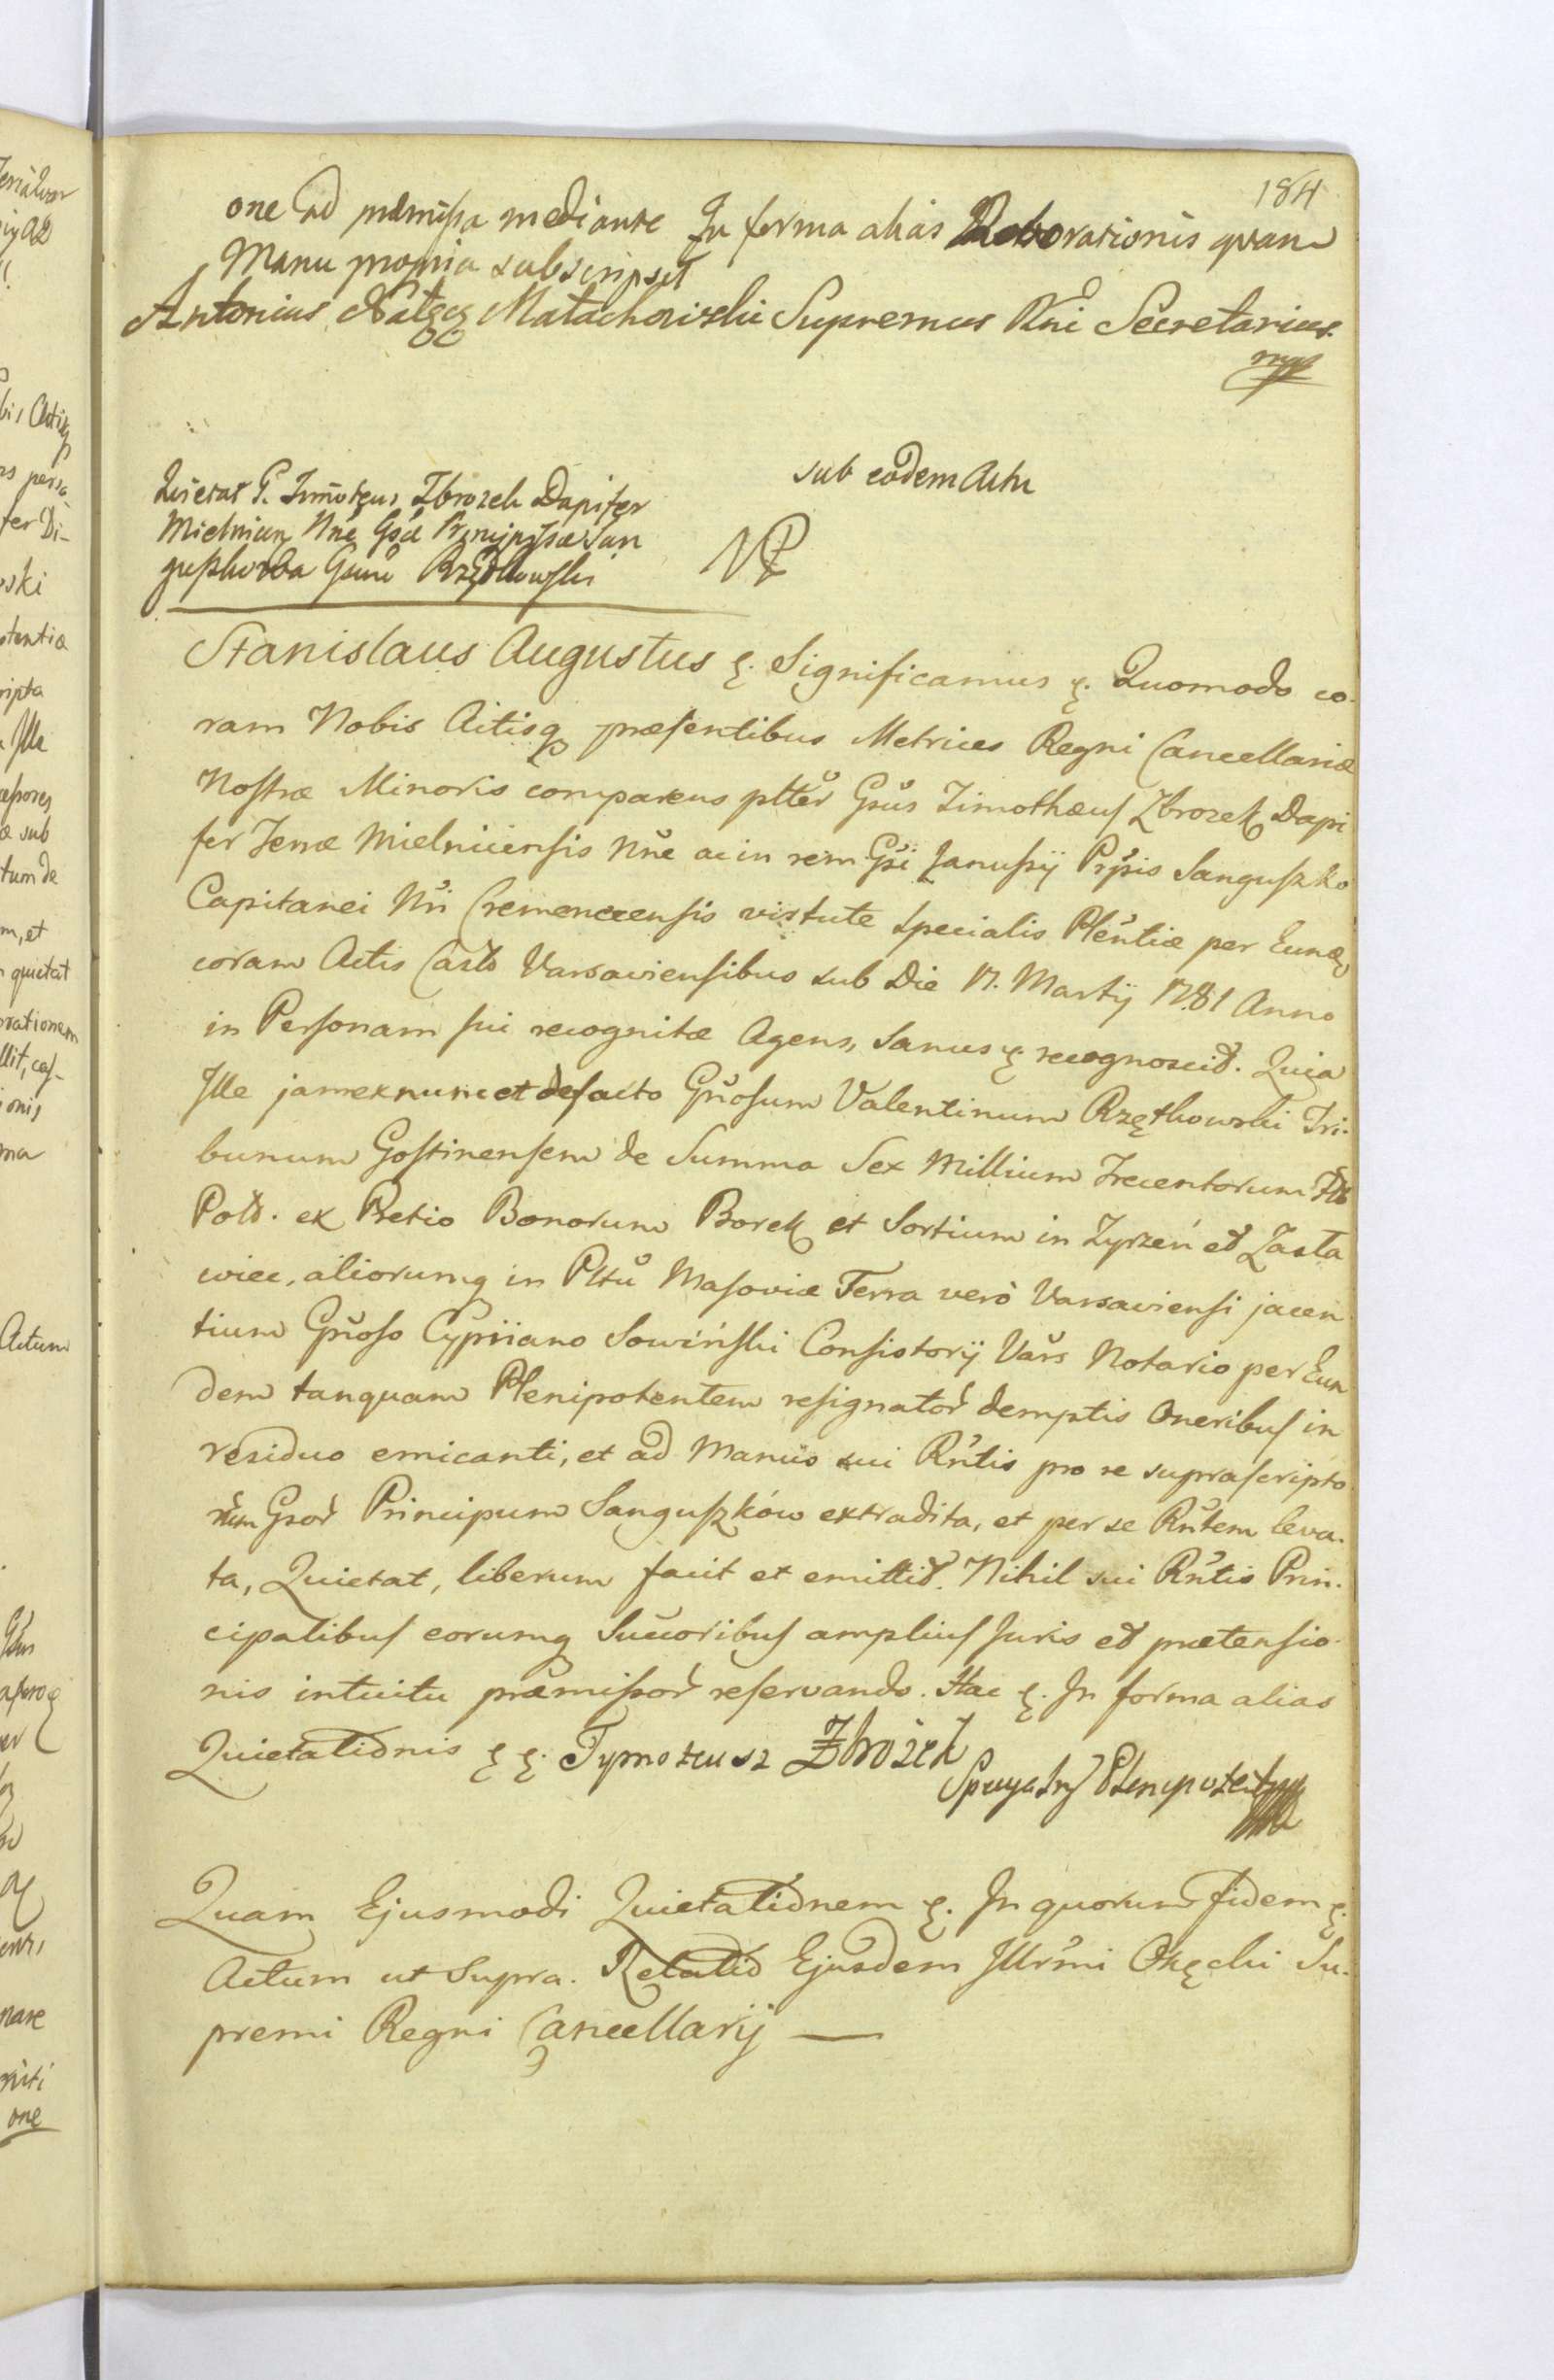 184
one ad præmissa mediante In forma alias Roborationis quam
Manu propria subscripsit
Antonius Nałęcz Małachowski Supremus Rni Secretarius
mpp
sub eodem Actu
Quietat G. Timoteus Zbrozek Dapifer
Mielnicen Nne Gsæ Prncipissæ San
guszkowa Gsum Rzętkowski
Stanislaus Augustus &. Significamus &. Quomodo co-
ram Nobis Actisq præsentibus Metrices Regni Cancellariæ
Nostræ Minoris comparens pltter Gsus Timothæus Zbrozek Dapi
fer Terræ Mielnicensis Nne ac in rem Gsi Janussij Prpis Sanguszko
Capitanei Nri Cremenecensis virtute specialis Plentiæ per Eund
coram Actis Castr Varsaviensibus sub Die 17. Martij 1781 Anno
in Personam sui recognitæ Agens, Sanus & recognoscit. Quia
Ille jam ex nunc et de facto Gnosum Valentinum Rzętkowski Tri-
bunum Gostinensem de Summa Sex Millium Trecentorum Flr
Pold. ex Pretio Bonorum Borek et Sortium in Zyrzeń et Zasta
wiec, aliorumq in Pltu Masoviæ Terra verò Varsaviensi jacen
tium Gnoso Cypriano Sowiński Consistorij Vars Notario per Eun
dem tanquam Plenipotentem resignator demptis Oneribus in
residuo emicanti, et ad Manus sui Rntis pro re suprascripto
rum Gsor Principum Sanguszków extradita, et per se Rntem leva-
ta, Quietat, liberum facit et emittit. Nihil sui Rntis Prin-
cipalibus eorumq Succoribus amplius Juris et prætensio-
nis intuitu præmissor reservando. Hac &. In forma alias
Quietationis & &. Tymoteusz Zbrożek
Specyalny Plenipotent mpp
Quam Ejusmodi Quietationem &. In quorum fidem &.
Actum ut Supra. Relatio Ejusdem Illrmi Okęcki Su-
premi Regni Cancellarij —